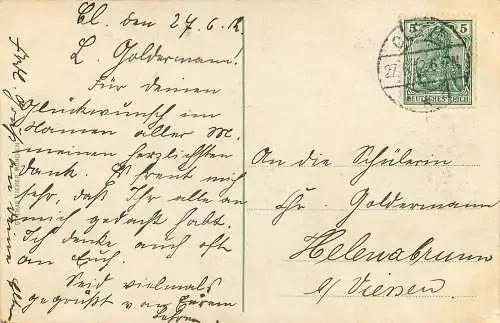 Cl. den 27.6.12.
L. Goldermann!
Für deinen
Glückwunsch im
Namen aller M.
meinen herzlichsten
Dank. Es freut mich
sehr, daß Ihr alle an
mich gedacht habt.
Ich denke auch oft
an Euch.
Seid vielmals
gegrüßt von Eurem
Lehrer
5 5
DEUTSCHES REICH
27.
An die Schülerin
Chr. Goldermann
Helenabrunn
b/ Viersen